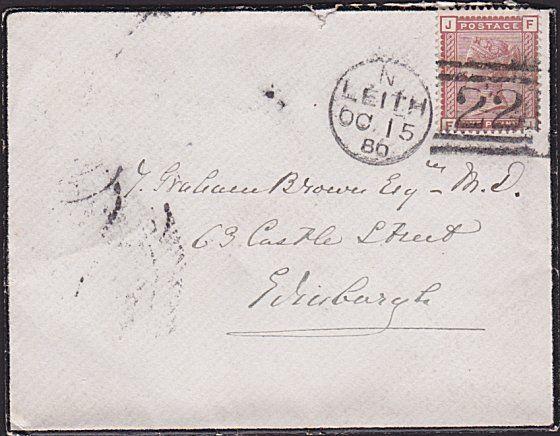 J POSTAGE F
N
LEITH
OC 15
80
22
F PENNY J
J. Graham Brown Esqre M.D.
63 Castle Street
Edinburgh